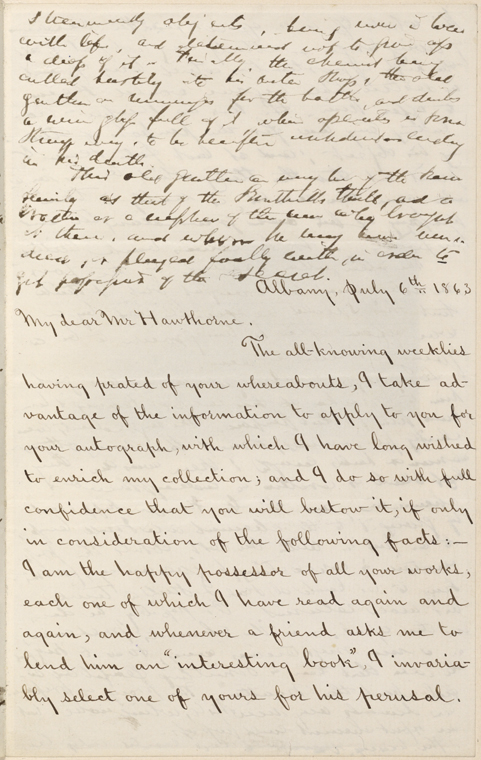 Strenuously objects, being now in love
with life, and determined not to give up
a drop of it. Finally, the chemist being
called hastily into his outer shop, the old
gentleman for the bottle, and drinks
a wine glass full of it, which operates in some
strange way, to be hereafter
in his death.
This old gentleman may be of the same
family as that of the
brother or a nephew of the man who brought
it there, and whom he may have
in order to
get possession of the secret.
Albany, July 6th 1863
My dear Mr Hawthorne.
The all-knowing weeklies
having prated of your whereabouts, I take ad-
vantage of the information to apply to you for
your autograph, with which I have long wished
to enrich my collection; and I do so with full
confidence that you will bestow it, if only
in consideration of the following facts:—
I am the happy possessor of all your works,
each one of which I have read again and
again, and whenever a friend asks me to
lend him an "interesting book", I invaria-
bly select one of yours for his perusal.